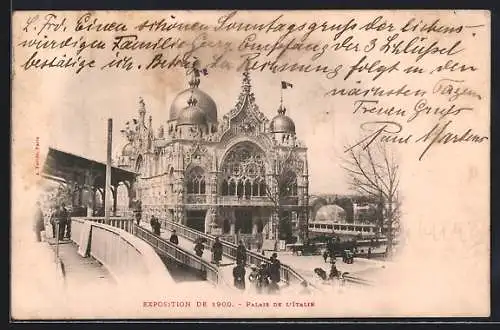 L. Frd. Einen schönen Sonntagsgruss der liebens-
würdigen Familie. Empfang der 3 Schlüssel
bestätige ich. Betr. Rechnung folgt in den
nächsten Tagen
Treuen Gruss
Paul Martin
EXPOSITION DE 1900. - PALAIS DE L'ITALIE